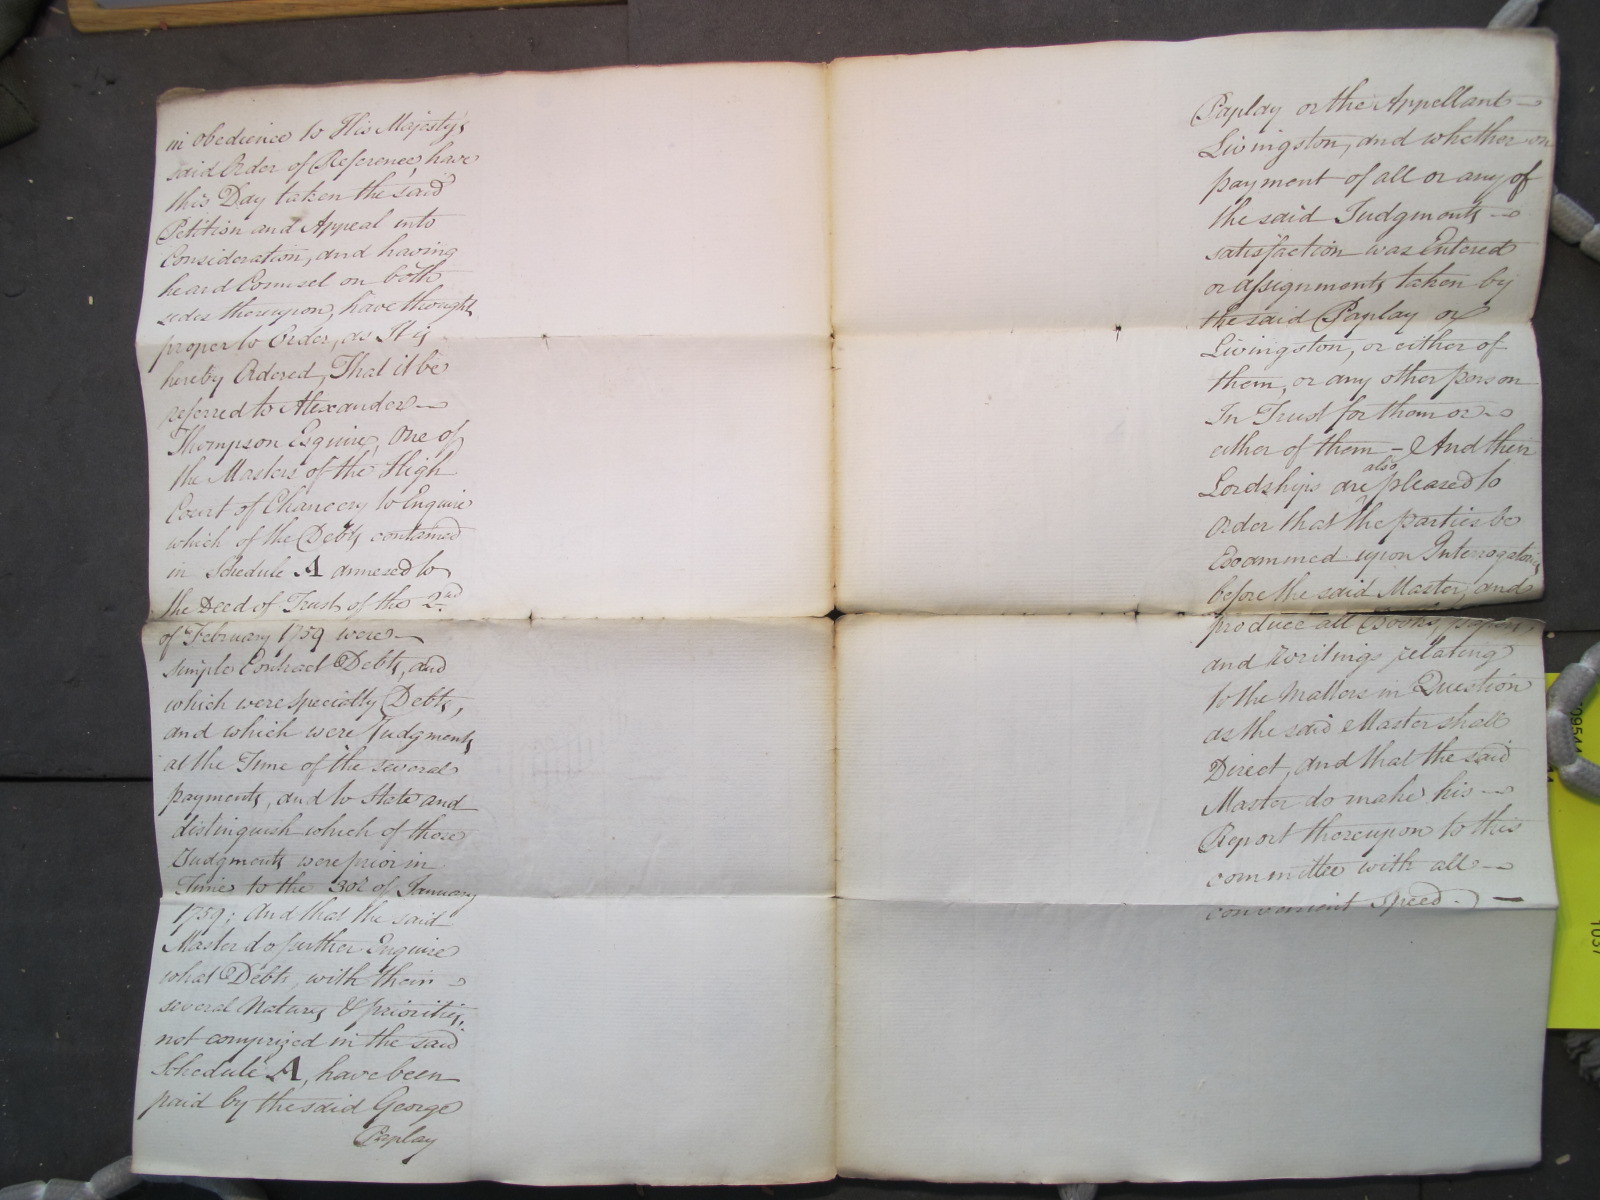 in Obedience to His Majesty's
said Order of Reference, have
this Day taken the said
Petition and Appeal into
Consideration, and having
heard Counsel on both
sides thereupon, have thought
proper to Order, as It is
hereby Ordered, That it be
referred to Alexander
Thompson Esquire, One of
the Masters of the High
Court of Chancery to Enquire
which of the Debts contained
in Schedule A annexed to
the Deed of Trust of the 2nd
of February 1759 were
simple Contract Debts, and
which were specialty Debts,
and which were Judgments
at the Time of the several
payments, and to State and
distinguish which of those
Judgments were prior in
Time to the 30th of January
1759; And that the said
Master do further Enquire
what Debts, with their
several Natures & priorities,
not comprized in the said
Schedule A, have been
paid by the said George
Paplay
Paplay or the Appellant
Livingston, and whether on
payment of all or any of
the said Judgments
satisfaction was Entered
or assignments taken by
the said Paplay or
Livingston, or either of
them, or any other person
In Trust for them or
either of them - And their
Lordships are also pleased to
Order that the parties be
Examined upon Interrogatories
before the said Master, and
produce all Books, papers,
and Writings relating
to the Matters in Question
as the said Master shall
Direct, and that the said
Master do make his
Report thereupon to this
committee with all
convenient Speed. -
09544
1037